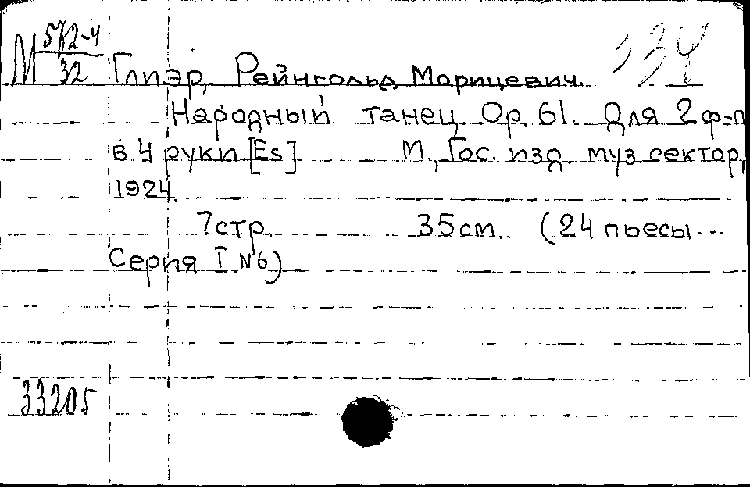 М 572-4
32
134
Глиэр, Рейнгольд Морицевич.
Народный танец Op. 61. Для 2 ф-п
в 4 руки [Es] М., Гос. изд. муз сектор,
1924
7стр. 35см. (24 пьесы...
Серия I №6)
33205